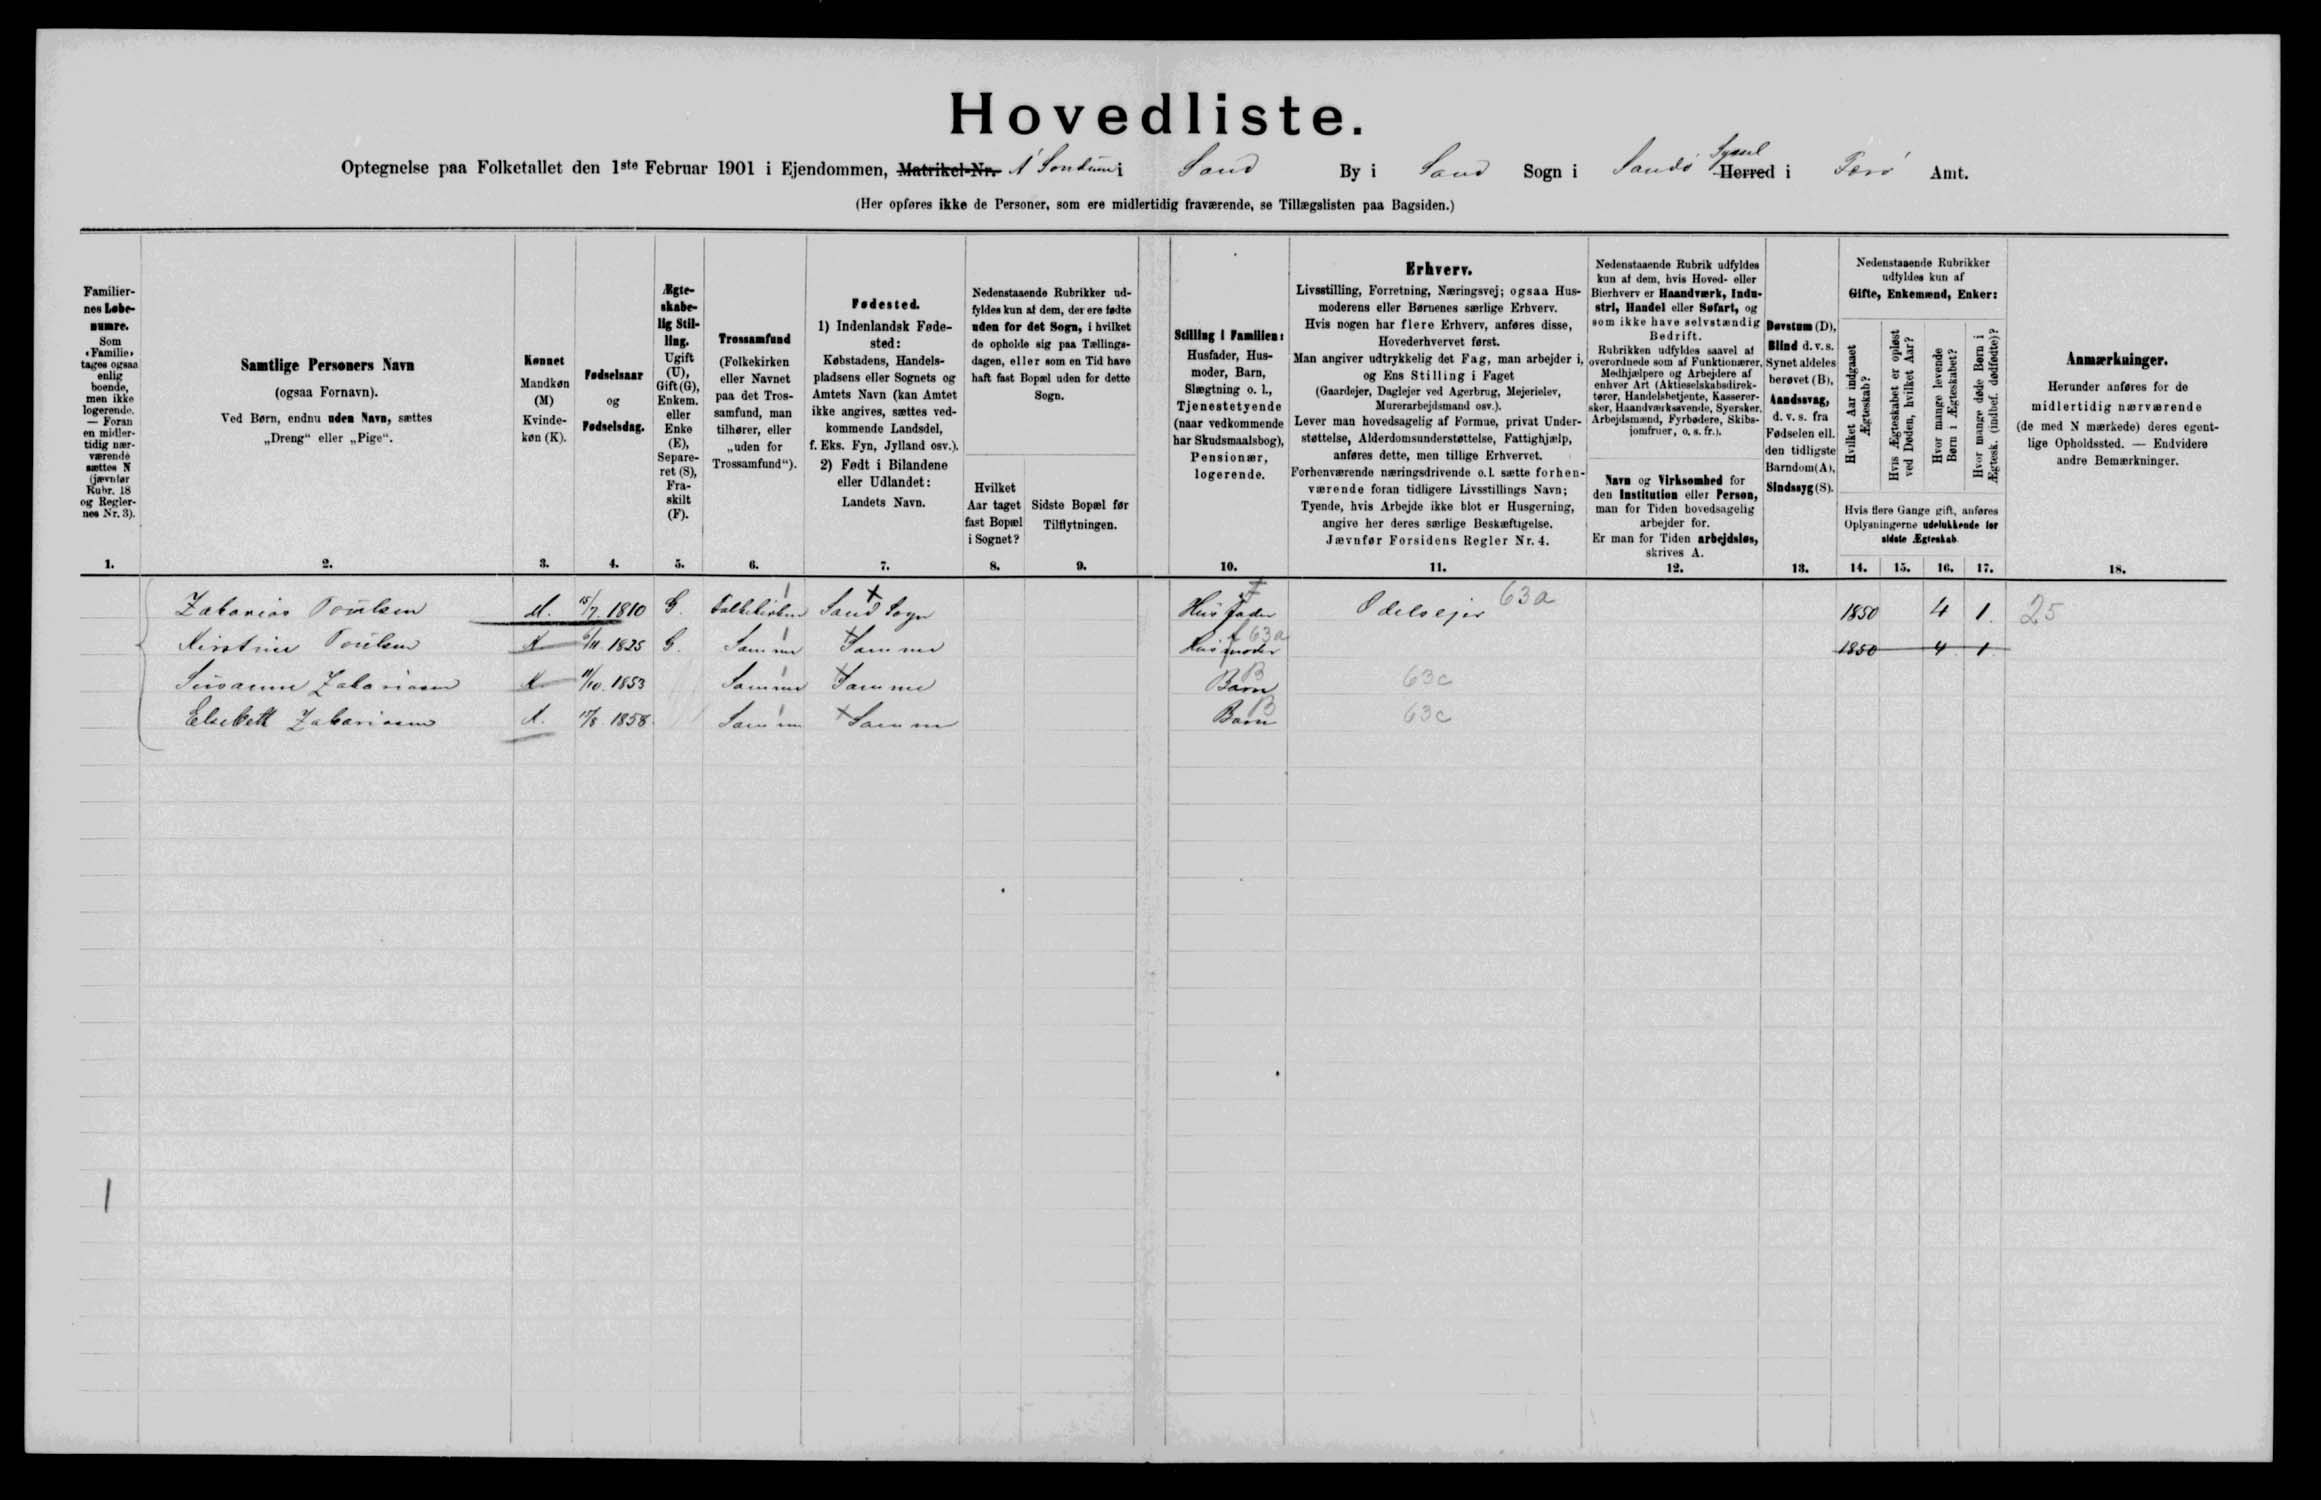 Hovedliste.
Optegnelse paa Folketallet den 1ste Februar 1901 i Ejendommen, Matrikel-Nr. Á Sondum i Sand By i Sand Sogn i Sandö Syssel Herred i Færö Amt.
(Her opføres ikke de Personer, som ere midlertidig fraværende, se Tillægslisten paa Bagsiden.)
Familier-
nes Løbe-
numre.
Som
«Familie»
tages ogsaa
enlig
boende,
men ikke
logerende.
— Foran
en midler-
tidig nær-
værende
sættes N
(jævnfør
Rubr. 18
og Regler-
nes Nr. 3).
1.
Samtlige Personers Navn
(ogsaa Fornavn).
Ved Børn, endnu uden Navn, sættes
„Dreng“ eller „Pige“.
2.
Kønnet
Mandkøn
(M)
Kvinde-
køn (K).
3.
Fødselsaar
og
Fødselsdag.
4.
Ægte-
skabe-
lig Stil-
ling.
Ugift
(U),
Gift (G),
Enkem.
eller
Enke
(E),
Separe-
ret (S),
Fra-
skilt
(F).
5.
Trossamfund
(Folkekirken
eller Navnet
paa det Tros-
samfund, man
tilhører, eller
„uden for
Trossamfund“).
6.
Fødested.
1) Indenlandsk Føde-
sted:
Købstadens, Handels-
pladsens eller Sognets og
Amtets Navn (kan Amtet
ikke angives, sættes ved-
kommende Landsdel,
f. Eks. Fyn, Jylland osv.).
2) Født i Bilandene
eller Udlandet:
Landets Navn.
7.
Nedenstaaende Rubrikker ud-
fyldes kun af dem, der ere fødte
uden for det Sogn, i hvilket
de opholde sig paa Tællings-
dagen, eller som en Tid have
haft fast Bopæl uden for dette
Sogn.
Hvilket
Aar taget
fast Bopæl
i Sognet?
8.
Sidste Bopæl før
Tilflytningen.
9.
Stilling i Familien:
Husfader, Hus-
moder, Barn,
Slægtning o. l.,
Tjenestetyende
(naar vedkommende
har Skudsmaalsbog),
Pensionær,
logerende.
10.
Erhverv.
Livsstilling, Forretning, Næringsvej; ogsaa Hus-
moderens eller Børnenes særlige Erhverv.
Hvis nogen har flere Erhverv, anføres disse,
Hovederhvervet først.
Man angiver udtrykkelig det Fag, man arbejder i,
og Ens Stilling i Faget
(Gaardejer, Daglejer ved Agerbrug, Mejerielev,
Murerarbejdsmand osv.).
Lever man hovedsagelig af Formue, privat Under-
støttelse, Alderdomsunderstøttelse, Fattighjælp,
anføres dette, men tillige Erhvervet.
Forhenværende næringsdrivende o. l. sætte forhen-
værende foran tidligere Livsstillings Navn;
Tyende, hvis Arbejde ikke blot er Husgerning,
angive her deres særlige Beskæftigelse.
Jævnfør Forsidens Regler Nr. 4.
11.
Nedenstaaende Rubrik udfyldes
kun af dem, hvis Hoved- eller
Bierhverv er Haandværk, Indu-
stri, Handel eller Søfart, og
som ikke have selvstændig
Bedrift.
Rubrikken udfyldes saavel af
overordnede som af Funktionærer,
Medhjælpere og Arbejdere af
enhver Art (Aktieselskabsdirek-
tører, Handelsbetjente, Kasserer-
sker, Haandværkssvende, Syersker,
Arbejdsmænd, Fyrbødere, Skibs-
jomfruer, o. s. fr.).
Navn og Virksomhed for
den Institution eller Person,
man for Tiden hovedsagelig
arbejder for.
Er man for Tiden arbejdsløs,
skrives A.
12.
Døvstum (D),
Blind d. v. s.
Synet aldeles
berøvet (B),
Aandssvag,
d. v. s. fra
Fødselen ell.
den tidligste
Barndom (A),
Sindssyg (S).
13.
Nedenstaaende Rubrikker
udfyldes kun af
Gifte, Enkemænd, Enker:
Hvilket Aar indgaaet
Ægteskab?
Hvis Ægteskabet er opløst
ved Døden, hvilket Aar?
Hvor mange levende
Børn i Ægteskabet?
Hvor mange døde Børn i
Ægtesk. (indbef. dødfødte)?
Hvis flere Gange gift, anføres
Oplysningerne udelukkende for
sidste Ægteskab.
14. 15. 16. 17.
Anmærkninger.
Herunder anføres for de
midlertidig nærværende
(de med N mærkede) deres egent-
lige Opholdssted. — Endvidere
andre Bemærkninger.
18.
Zakarias Poulsen M. 15/7 1810 G. Folkekirken Sand Sogn Husfader Odelsejer 63a 1850 4 1. 25
Kirstine Poulsen K 6/11 1825 G. Samme Samme Husmoder 63a 1850 4 1
Susanne Zakariasen K 11/10. 1853 Samme Samme Barn B 63c
Elsebett Zakariasen K. 17/8. 1858 Samme Samme Barn B 63c